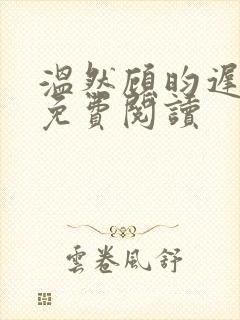 溫然顧昀遲
免費閱讀
雲卷風舒